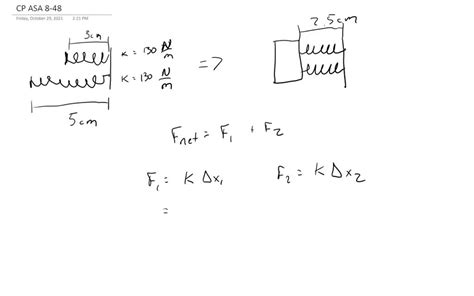 CP ASA 8-48
Friday, October 29, 2021 2:25 PM
3cm
K = 130 N/m
K = 130 N/m
5cm
=>
2.5cm
Fnet = F1 + F2
F1 = K Δx1
F2 = K Δx2
=